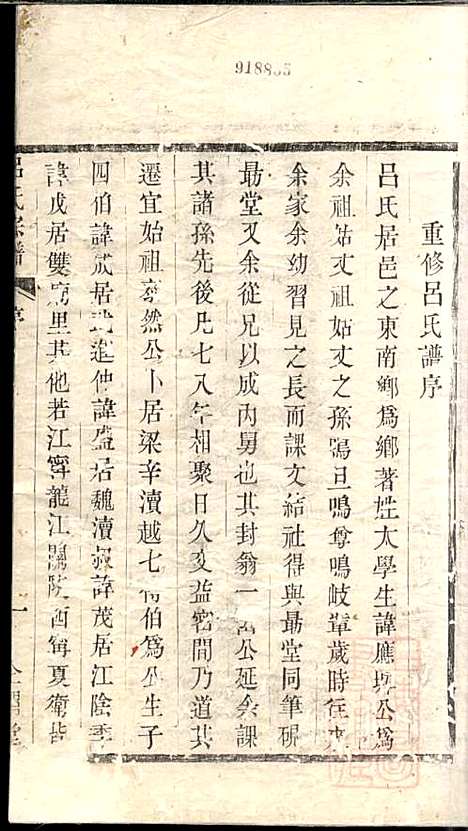 918835
重修呂氏譜序
呂氏居邑之東南鄉爲鄉著姓太學生諱應公爲
余祖姑丈祖姑丈之孫鶚旦鳴尊鳴岐輩歲時往來
余家余幼習見之長而課文結社得與勗堂同筆硯
勗堂又余從兄以成內舅也其封翁一公延余課
其諸孫先後凡七八年相聚日久交益密間乃道其
遷宜始祖奕然公卜居梁辛瀆越七伯爲公生子
四伯諱成居武進仲諱盛居魏瀆叔諱茂居江陰季
諱茂居雙廟里其他若江寧龍江關陜西寧夏衛皆
呂氏宗譜
序
一
堂